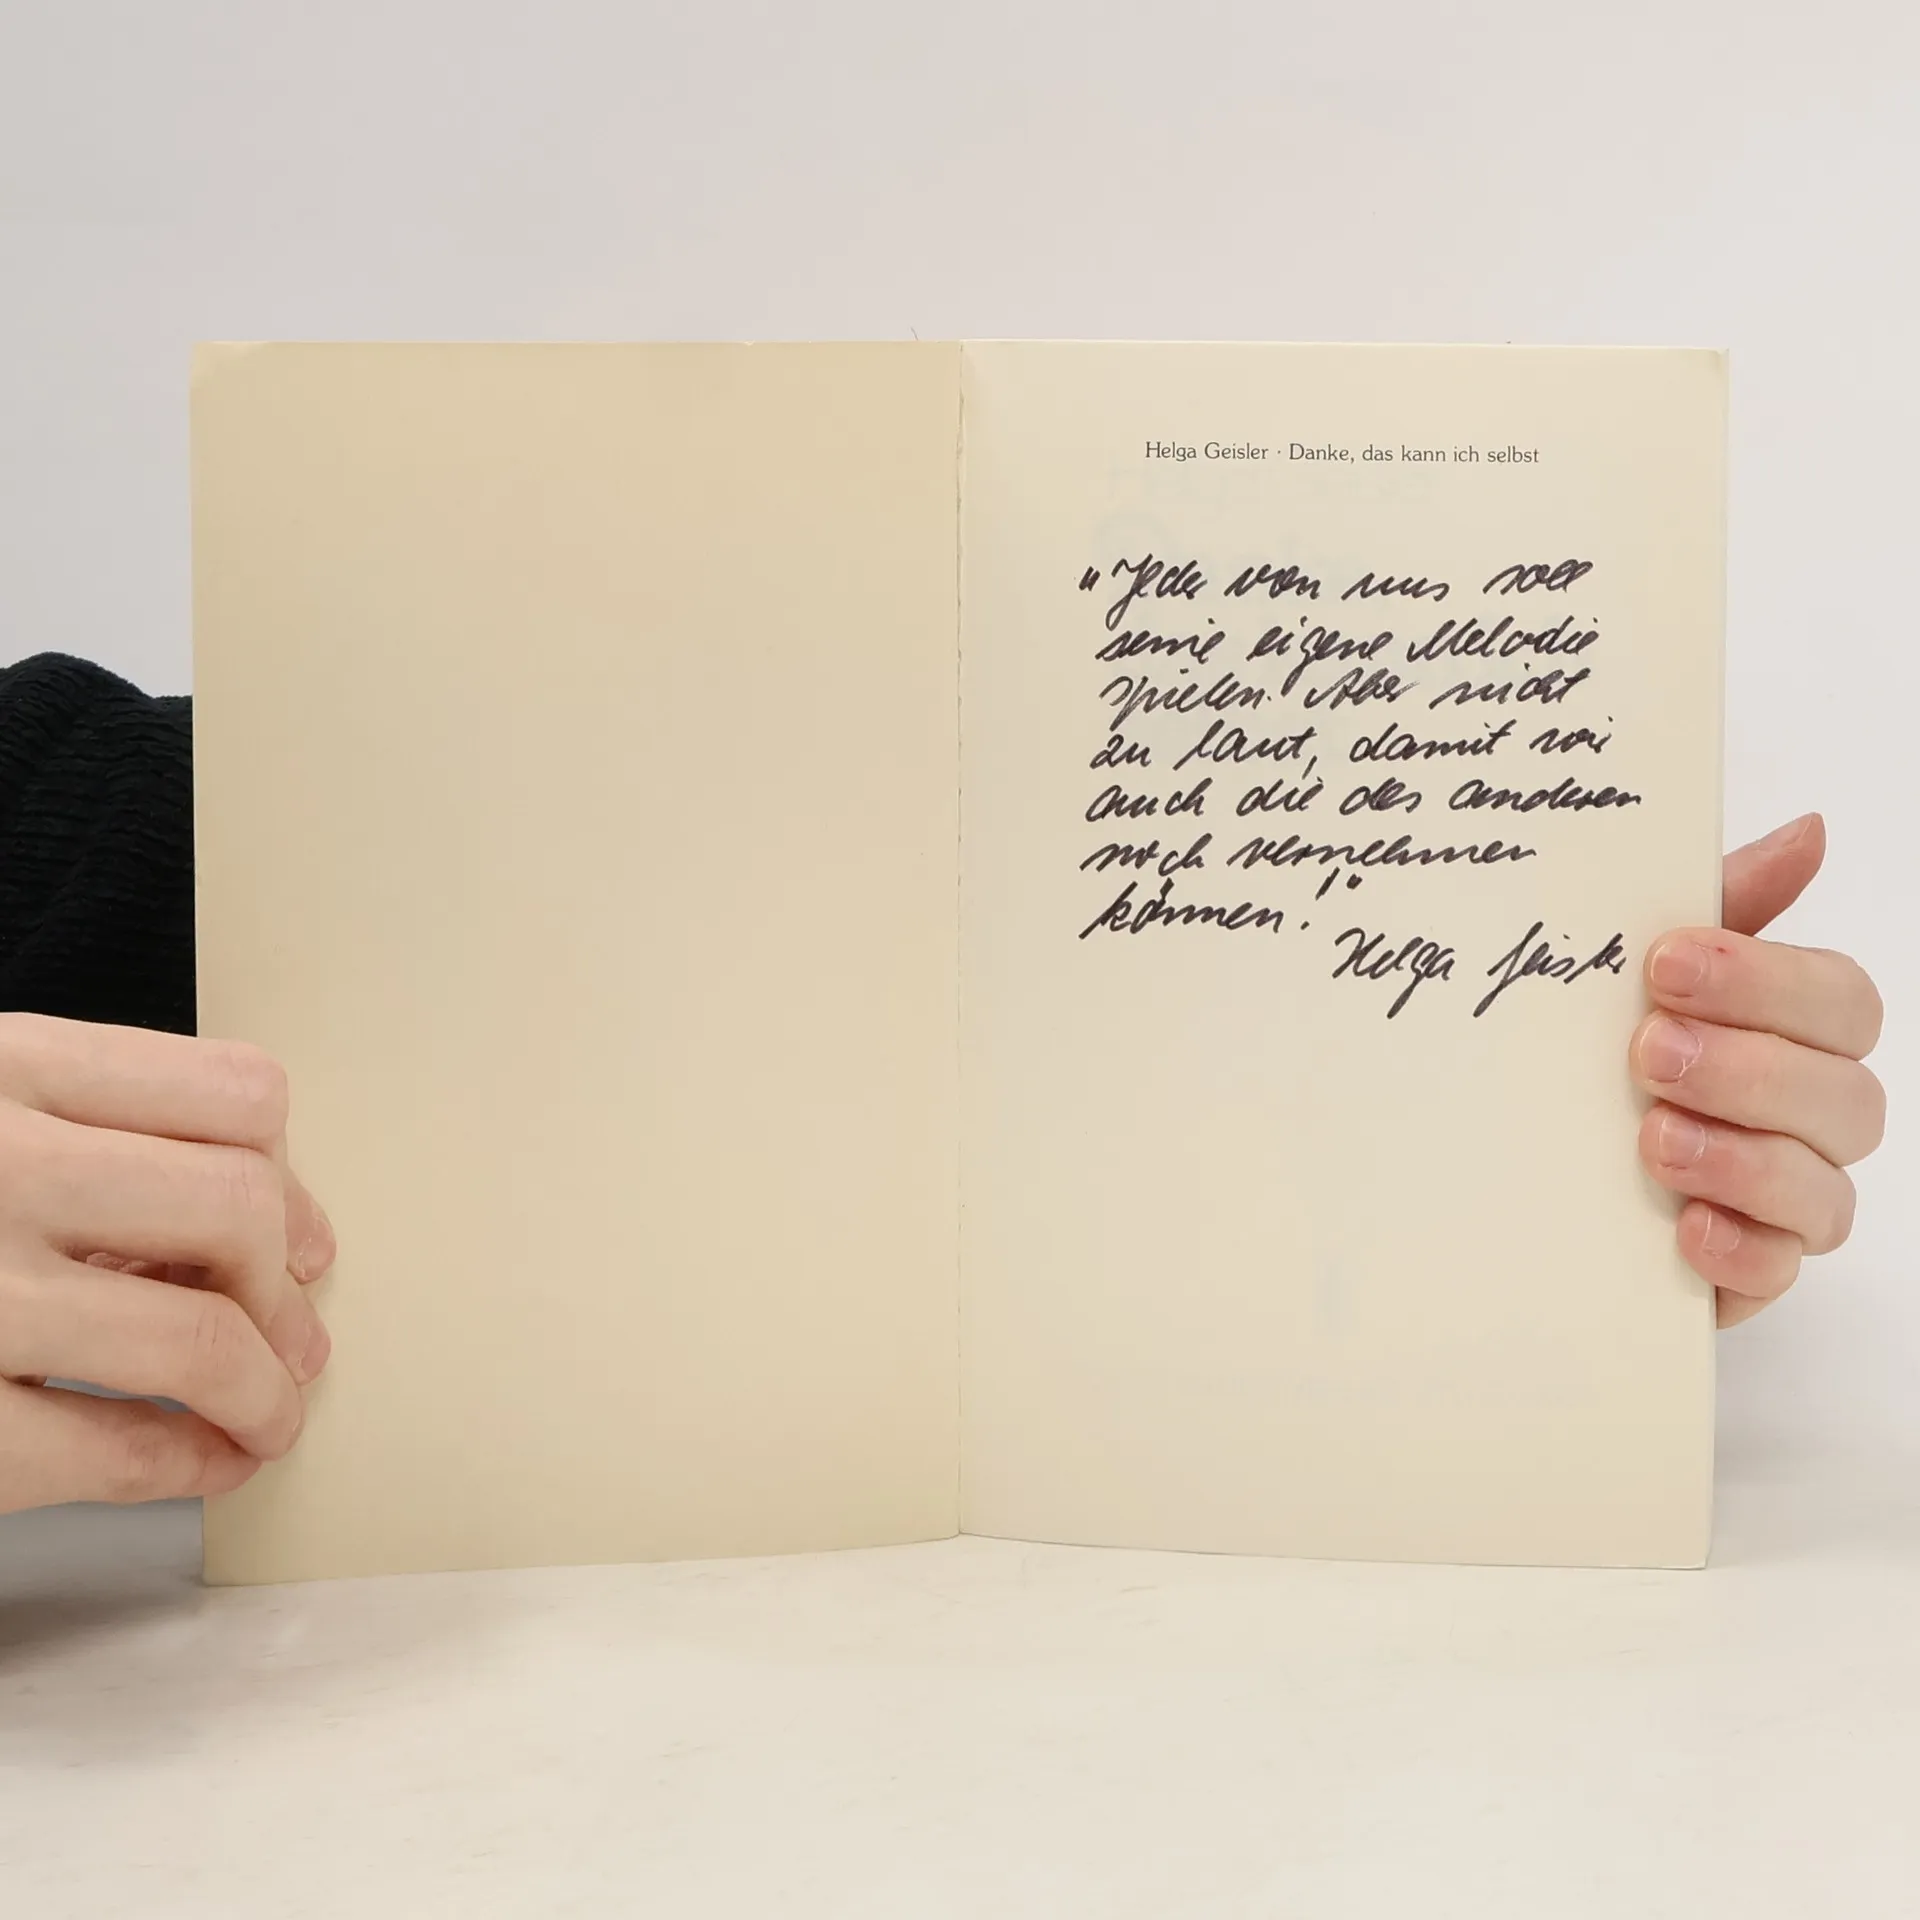 Helga Geisler · Danke, das kann ich selbst
„Jeder von uns soll
seine eigene Melodie
spielen. Aber nicht
zu laut, damit wir
auch die des anderen
noch vernehmen
können!"
Helga Geisler